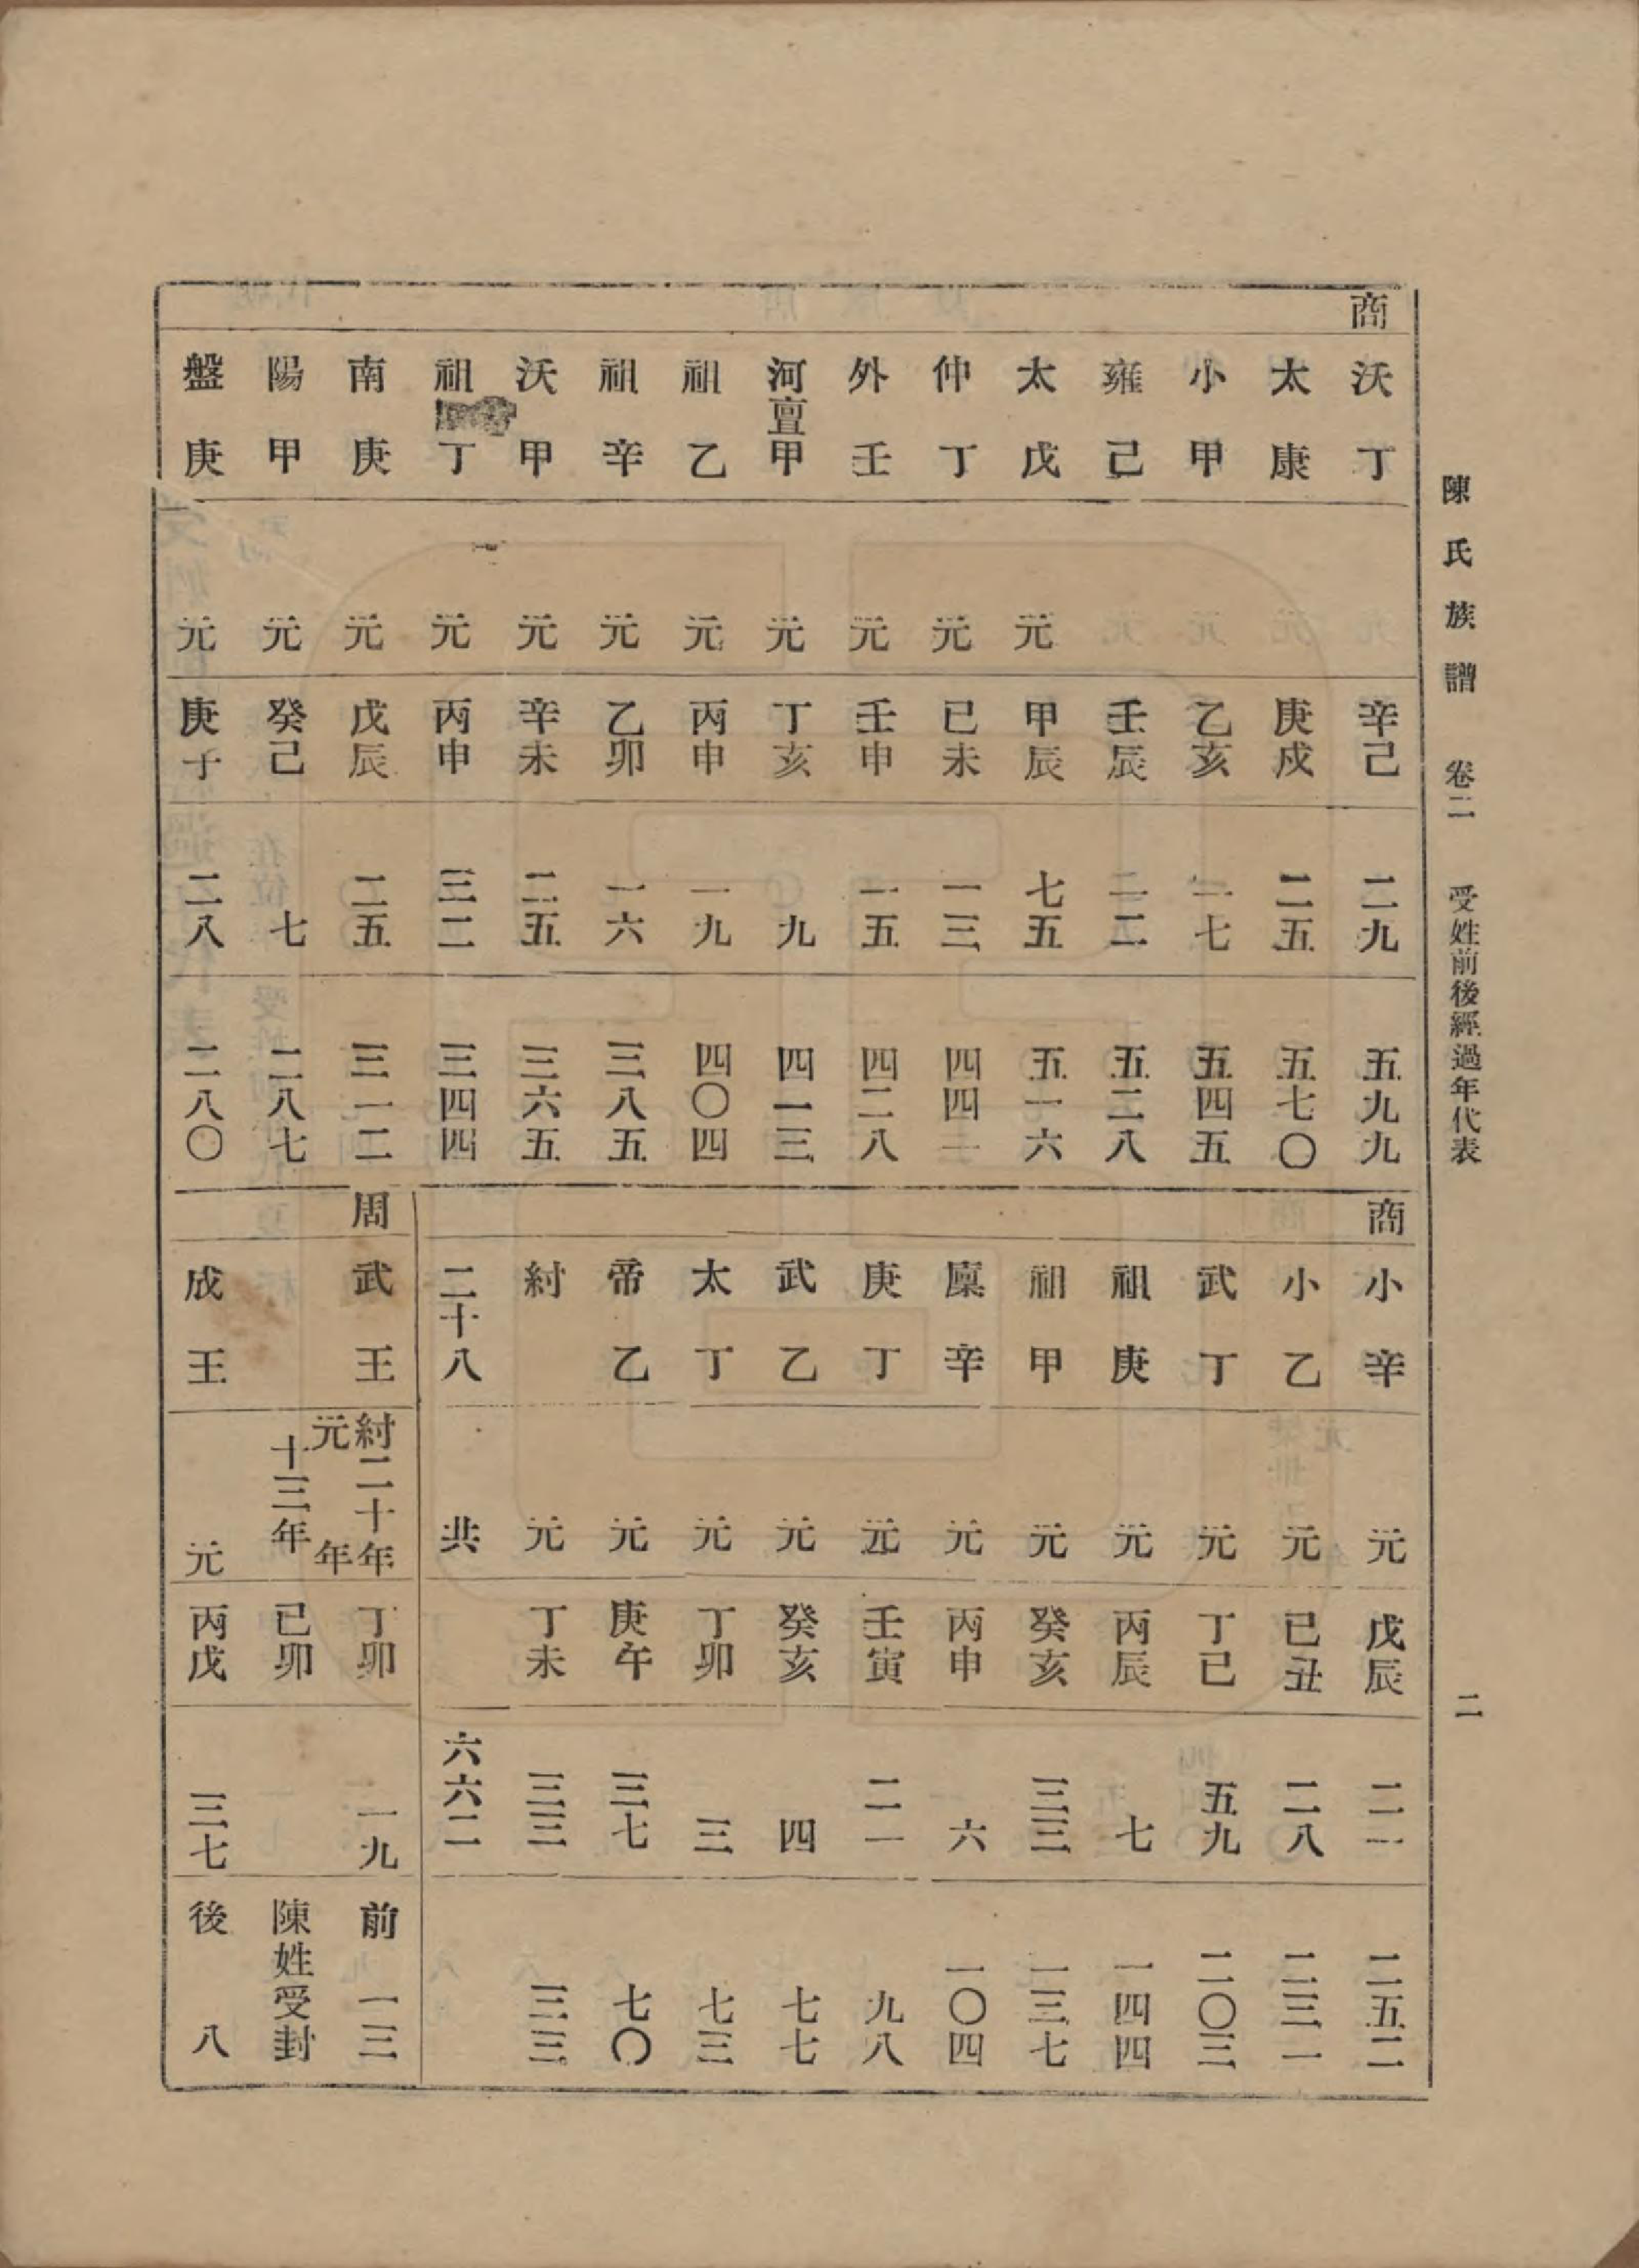 陳氏族譜 卷二 受姓前後經過年代表 二
商
沃丁 辛己 二九 五九九
太康 庚戍 二五 五七〇
小甲 乙亥 一七 五四五
雍己 壬辰 一二 五二八
太戊 元 甲辰 七五 五一六
仲丁 元 已未 一三 四四一
外壬 元 壬申 一五 四二八
河亶甲 元 丁亥 九 四一三
祖乙 元 丙申 一九 四〇四
祖辛 元 乙卯 一六 三八五
沃甲 元 辛未 二五 三六五
祖丁 元 丙申 三二 三四四
南庚 元 戊辰 二五 三一二
陽甲 元 癸己 七 二八七
盤庚 元 庚子 二八 二八〇
商
小辛 元 戊辰 二一 二五二
小乙 元 已丑 二八 二三一
武丁 元 丁已 五九 二〇三
祖庚 元 丙辰 七 一四四
祖甲 元 癸亥 三三 一三七
廩辛 元 丙申 六 一〇四
庚丁 元 壬寅 二一 九八
武乙 元 癸亥 四 七七
太丁 元 丁卯 三 七三
帝乙 元 庚午 三七 七〇
紂 元 丁未 三三 三三
二十八 共 六六二
周
武王 紂二十年 丁卯 一九 前 一三
元年
十三年 已卯 陳姓受封
成王 元 丙戊 三七 後 八